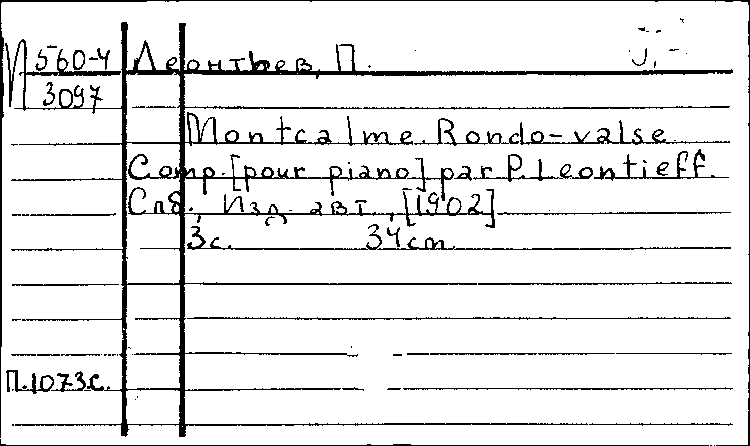 М 560-4 Леонтьев, П.
3097
Montcalme. Rondo-valse
Comp. [pour piano] par P. Leontieff.
Спб., Изд. авт., [1902]
3с. 34cm
П.1073с.